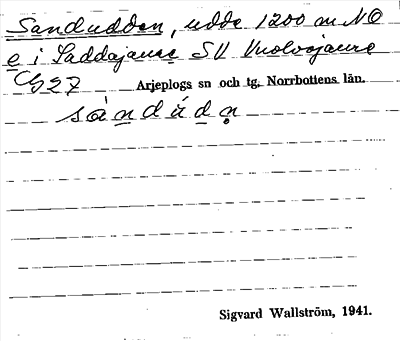 Sandudden, udde 1200 m NO
e i Saddajaure SV Vuolvojaure
C527 Arjeplogs sn och tg. Norrbottens län.
sàndádn̥
Sigvard Wallström, 1941.